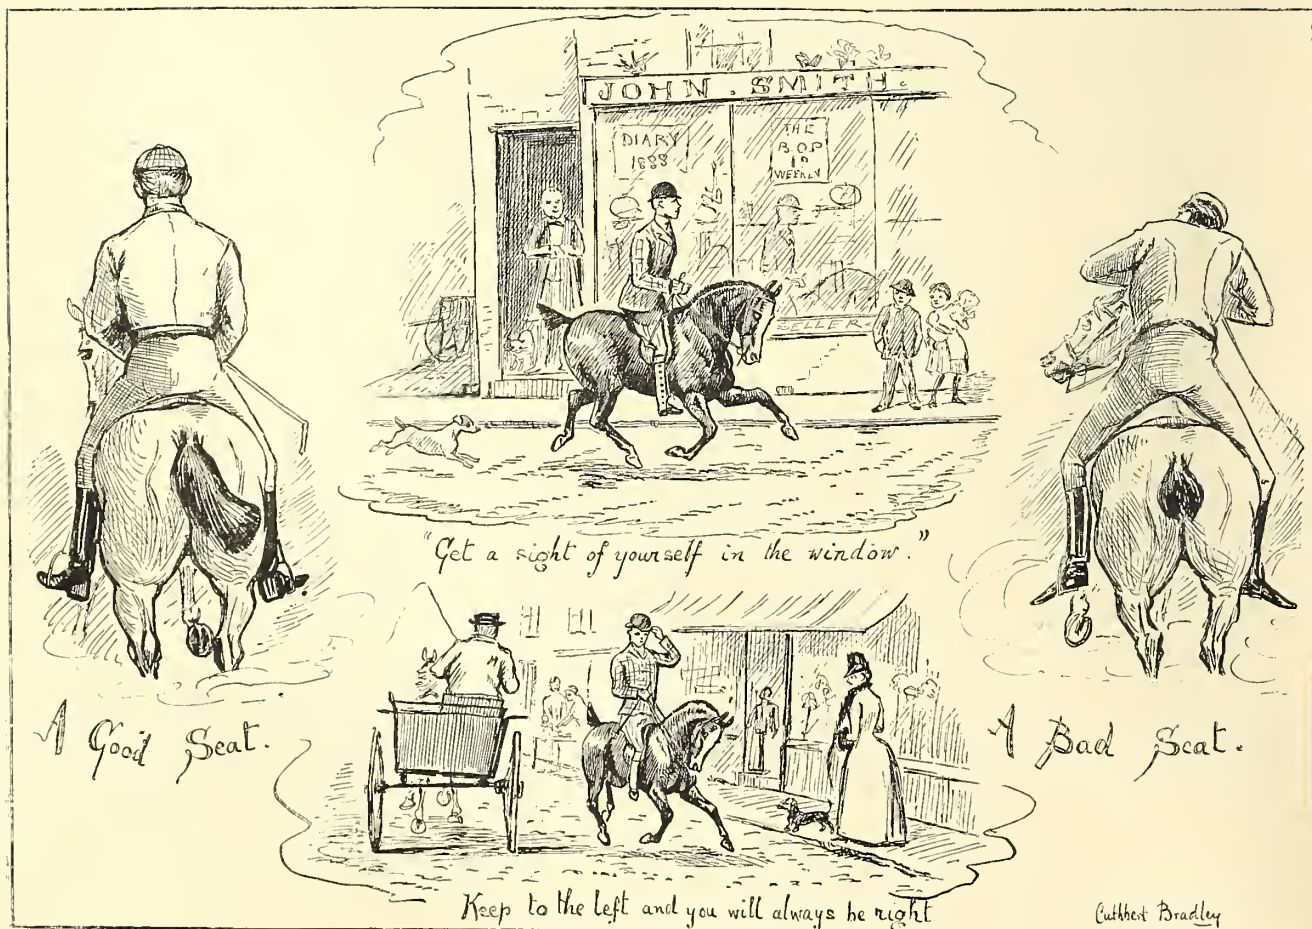 JOHN . SMITH.
DIARY
1888
THE
B.O.P
1D
WEEKLY
SELLER
"Get a sight of yourself in the window."
A Good Seat.
A Bad Seat.
Keep to the left and you will always be right
Cuthbert Bradley